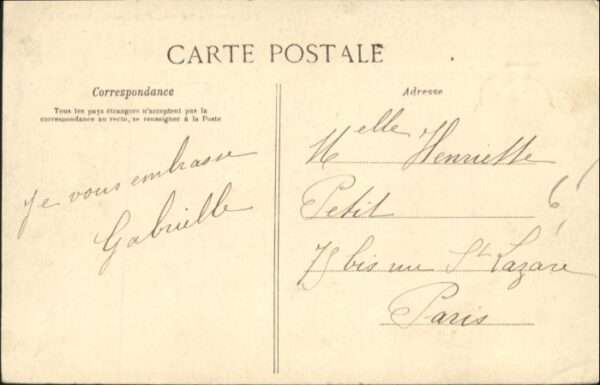 CARTE POSTALE
Correspondance
Tous les pays étrangers n'acceptent pas la
correspondance au recto, se renseigner à la Poste
Je vous embrasse
Gabrielle
Adresse
Melle Henriette
Petit 6
75 bis rue St Lazare
Paris